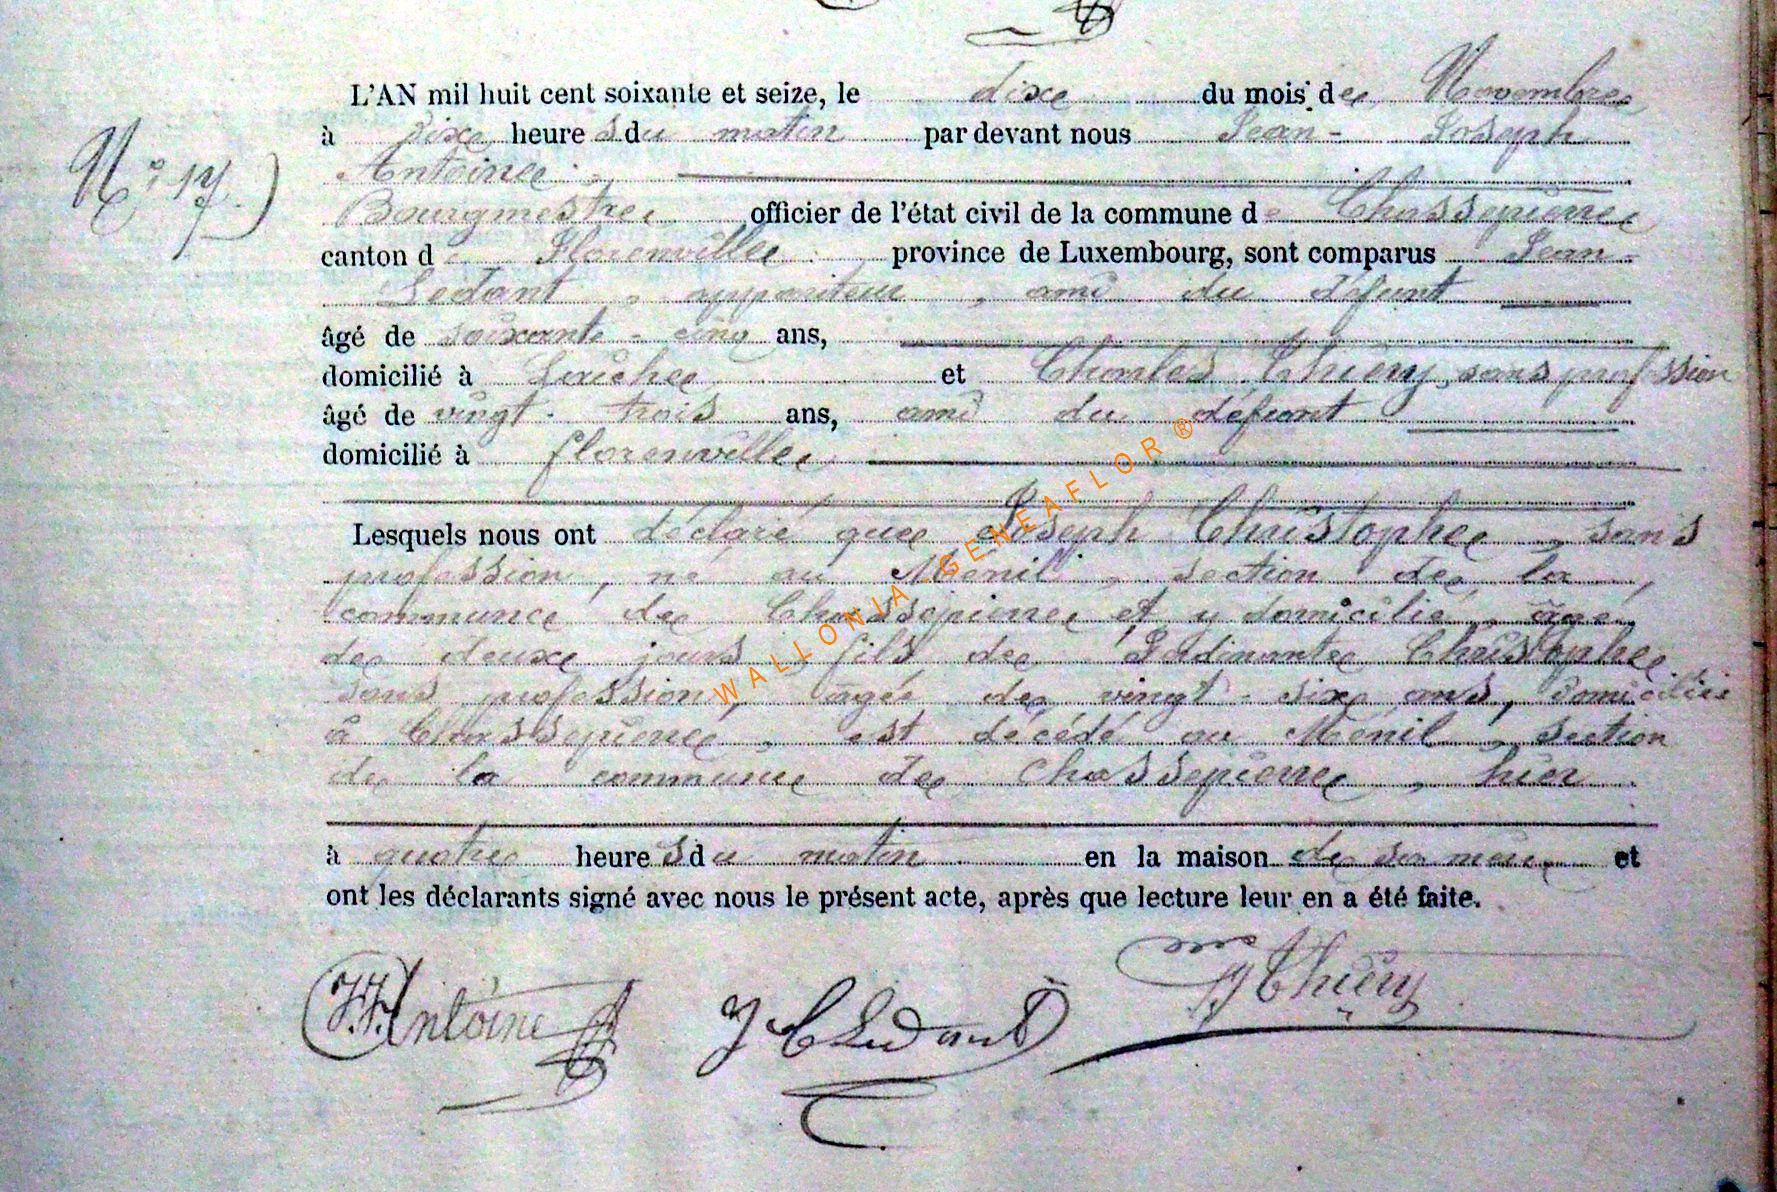 L'AN mil huit cent soixante et seize, le dix du mois de Novembre
à dix heures du matin par devant nous Jean-Joseph
N° 17)
Antoine
Bourgmestre officier de l'état civil de la commune de Chassepierre
canton de Florenville province de Luxembourg, sont comparus Jean-
Ledant, appariteur, ami du défunt
âgé de soixante-cinq ans,
domicilié à Laiche et Charles Thiery, sans profession
âgé de vingt-trois ans, ami du défunt
domicilié à florenville
Lesquels nous ont déclaré que Joseph Christophe, sans
profession, né au Ménil, section de la
commune de Chassepierre et y domicilié, âgé
de deux jours, fils de Christophe
sans profession, âgée de vingt-six ans, domiciliée
à Chassepierre, est décédé au Ménil, section
de la commune de Chassepierre, hier
à quatre heures du matin en la maison de sa mère et
ont les déclarants signé avec nous le présent acte, après que lecture leur en a été faite.
J.J. Antoine J C Ledant Thiery
WALLONIA-GENEAFLOR ®